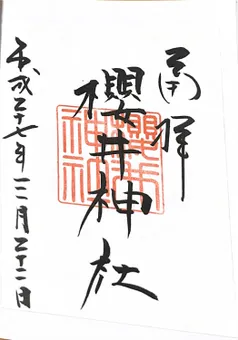 奉拝
櫻井神社
平成二十七年三月二十二日
櫻井
神社